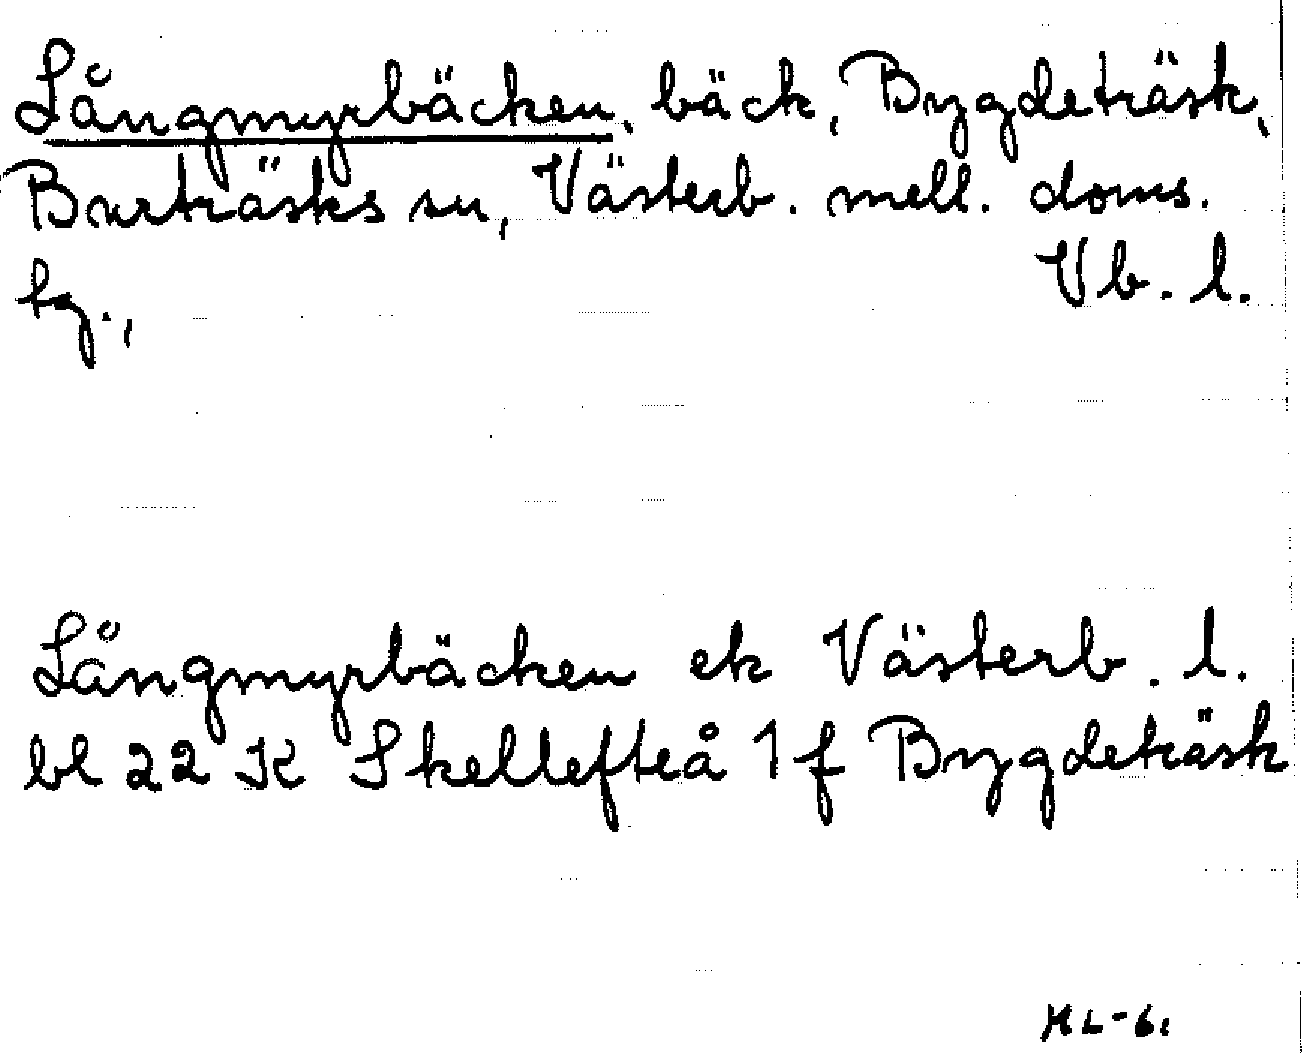 Långmyrbäcken, bäck, Bygdeträsk,
Burträsks sn, Västerb. mell. doms.
tg.,
Vb. l.
Långmyrbäcken ek Västerb. l.
bl 22 K Skellefteå 1 f Bygdeträsk
HL-61